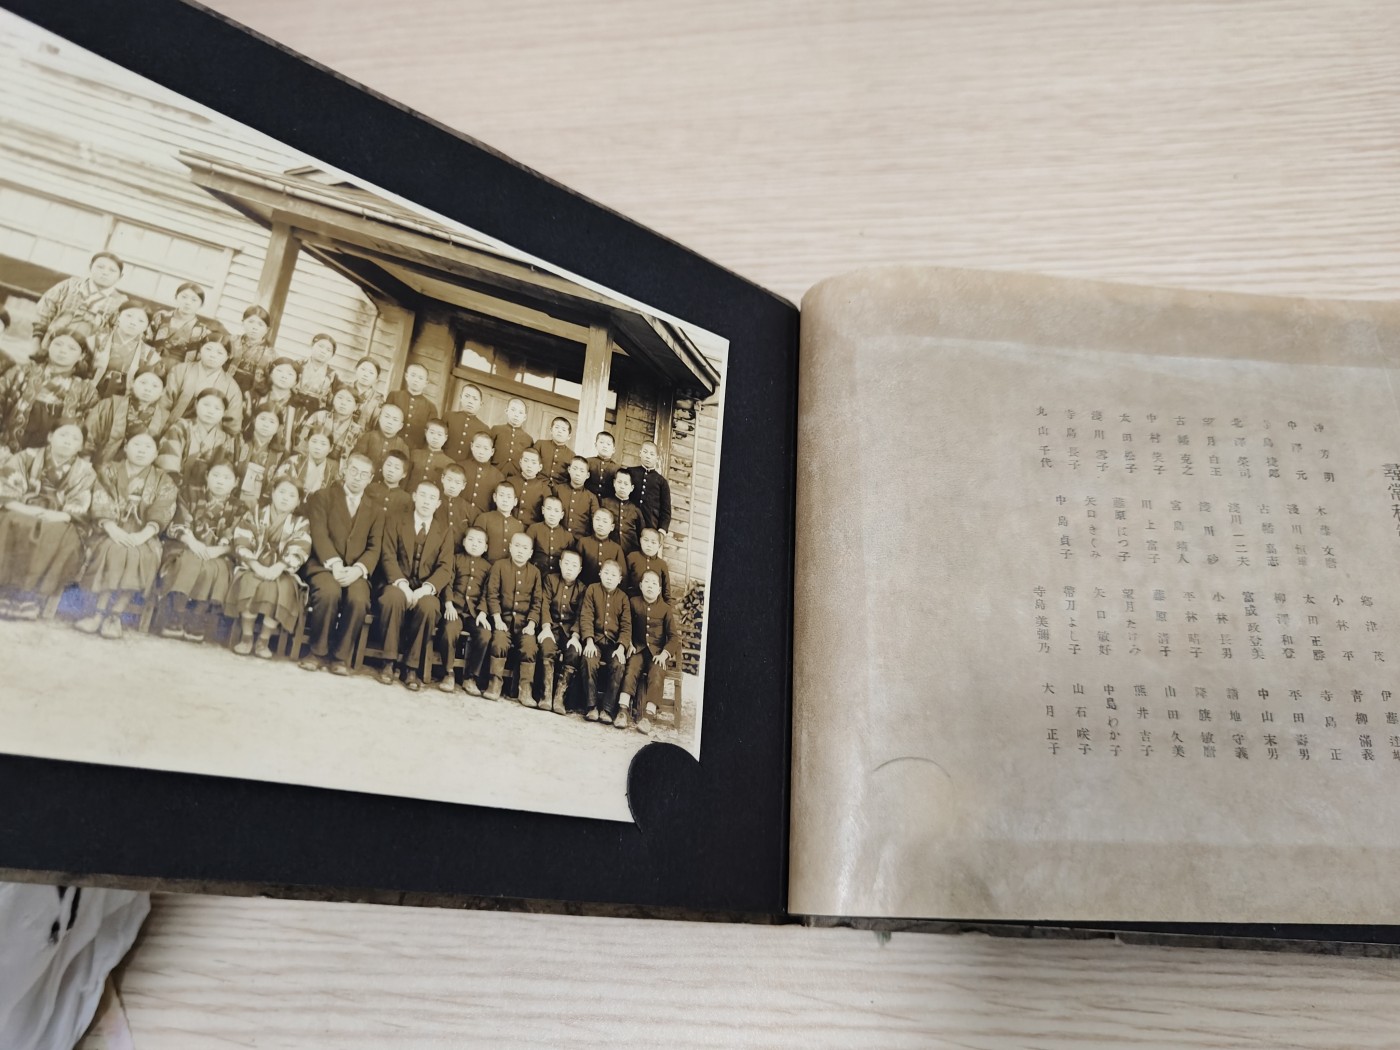 尋常
伊藤
青柳滿義
寺島正
平田壽男
中山末男
請地守義
降旗敏麿
山田久美
熊井吉子
中島わか子
山石咲子
大月正子
郷津茂
小林平
太田正勝
柳澤和登
富成政登美
小林長男
平林晴子
藤原清子
望月たけみ
矢口敏好
帶刀よし子
寺島美彌乃
文麿
淺川
古幡嘉志
淺川一二夫
淺川砂
宮島晴人
川上富子
藤原はつ子
矢口きくみ
中島貞子
芳明
中澤元
寺島捷郎
北澤榮司
望月
古幡克之
中村
太田
淺川
寺島長子
丸山千代